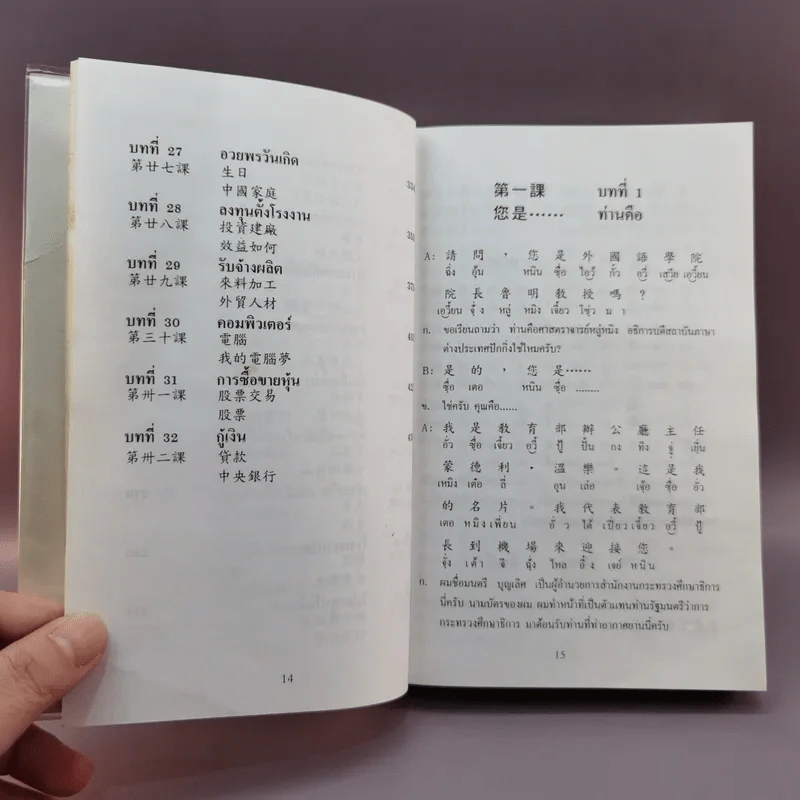 บทที่ 27 อวยพรวันเกิด
第廿七課 生日
中國家庭
บทที่ 28 ลงทุนตั้งโรงงาน
第廿八課 投資建廠
效益如何
บทที่ 29 รับจ้างผลิต
第廿九課 來料加工
外貿人材
บทที่ 30 คอมพิวเตอร์
第三十課 電腦
我的電腦夢
บทที่ 31 การซื้อขายหุ้น
第卅一課 股票交易
股票
บทที่ 32 กู้เงิน
第卅二課 貸款
中央銀行
14
第一課 บทที่ 1
您是…… ท่านคือ
A: 請問，您是外國語學院
ฉิ่ง อุ้น หนิน ซื่อ ไอวู้ กั๋ว อวี่ เสวีย เอวี้ยน
院長魯明教授嗎？
เอวี้ยน จุ้ง หลู่ หมิง เจี้ยว โซ่ว มา
ก. ขอเรียนถามว่า ท่านคือศาสตราจารย์หลู่หมิง อธิการบดีสถาบันภาษา
ต่างประเทศปักกิ่งใช่ไหมครับ?
B: 是的，您是……
ซื่อ เตอ หนิน ซื่อ ........
ข. ใช่ครับ คุณคือ......
A: 我是教育部辦公廳主任
อั่ว ซื่อ เจี้ยว อวี้ ปู้ ปั้น กง ทิง จู่ เยิ่น
蒙德利·溫樂。這是我
เหมิง เต๋อ ลี่ อุน เล่อ เจ้อ ซื่อ อั่ว
的名片。我代表教育部
เตอ หมิง เพี่ยน อั่ว ไต้ เปี่ยว เจี้ยว อวี้ ปู้
長到機場來迎接您。
จั่ง เต้า จี ฉั่ง ไหล อิ๋ง เจย์ หนิน
ก. ผมชื่อมนตรี บุญเลิศ เป็นผู้อำนวยการสำนักงานกระทรวงศึกษาธิการ
นี่ครับ นามบัตรของผม ผมทำหน้าที่เป็นตัวแทนท่านรัฐมนตรีว่าการ
กระทรวงศึกษาธิการ มาต้อนรับท่านที่ท่าอากาศยานนี่ครับ
15